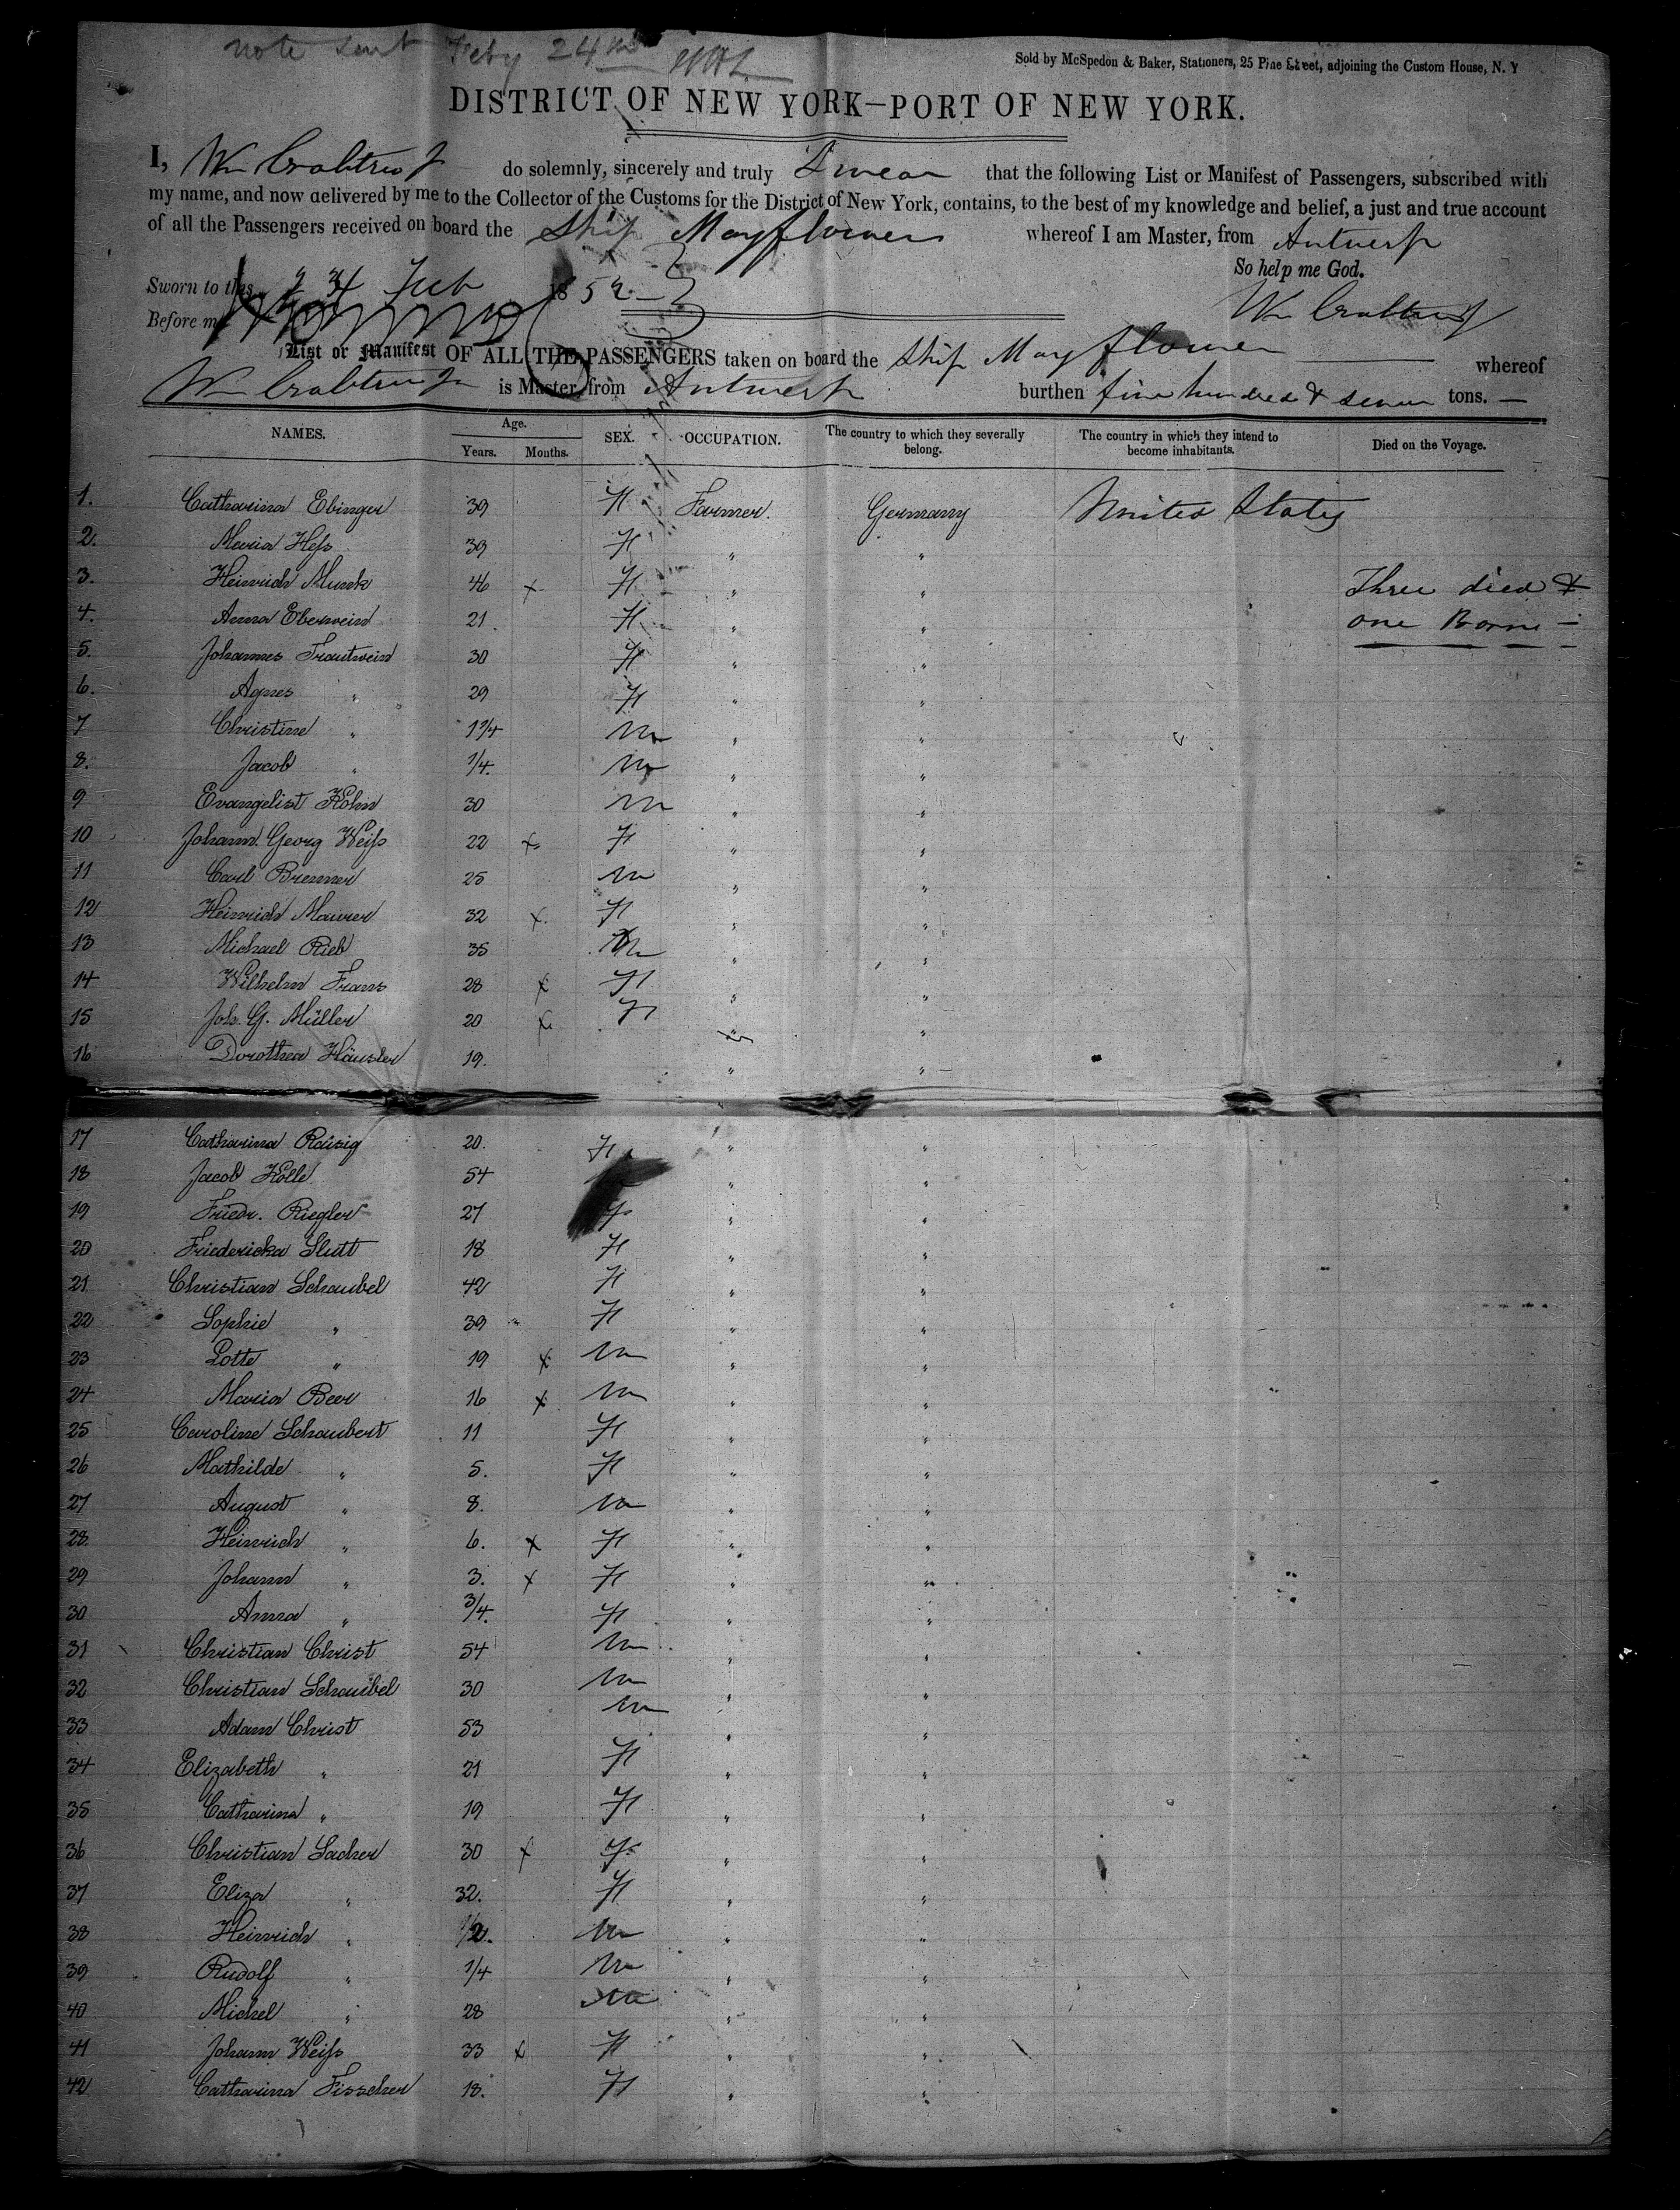 note sent Feby 24th
Sold by McSpedon & Baker, Stationers, 25 Pine Street, adjoining the Custom House, N. Y
DISTRICT OF NEW YORK—PORT OF NEW YORK.
I, Wm Crabtree Jr do solemnly, sincerely and truly Swear that the following List or Manifest of Passengers, subscribed with
my name, and now delivered by me to the Collector of the Customs for the District of New York, contains, to the best of my knowledge and belief, a just and true account
of all the Passengers received on board the Ship Mayflower whereof I am Master, from Antwerp
So help me God.
Sworn to this 24 Feb 1852
Wm Crabtree Jr
Before me
List or Manifest OF ALL THE PASSENGERS taken on board the Ship Mayflower whereof
Wm Crabtree Jr is Master, from Antwerp burthen five hundred & seven tons.
NAMES. Age. Years. Months. SEX. OCCUPATION. The country to which they severally belong. The country in which they intend to become inhabitants. Died on the Voyage.
1. Catharina Ebinger 39 F Farmer. Germany United States
2. Maria Heſs 39 F " "
3. Heinrich Munk 46 x F " " Three died &
4. Anna Eberwein 21 F " " one Borne —
5. Johannes Trautwein 30 F " "
6. Agnes " 29 F " "
7 Christine " 1 3/4 M " "
8. Jacob " 1/4. M " "
9 Evangelist Kohn 30 M " "
10 Johann Georg Weiſs 22 x F " "
11 Carl Brenner 25 M " "
12 Heinrich Maurer 32 x F " "
13 Michael Rieb 35 M " "
14 Wilhelm Franz 28 x F " "
15 Joh. G. Müller 20 x F " "
16 Dorothea Häusler 19. " "
17 Catharina Raüsig 20. F " "
18 Jacob Kolle 54 " "
19 Friedr. Riegler 27 F " "
20 Friedericka Slutt 18 F " "
21 Christian Schaubel 42 F " "
22 Sophie " 39 F " "
23 Lotte " 19 x M " "
24 Maria Beer 16 x M " "
25 Caroline Schaubert 11 F " "
26 Mathilde " 5. F " "
27 August " 8. M " "
28. Heinrich " 6. x F " "
29 Johann " 3. x F " "
30 Anna " 3/4. F " "
31 Christian Christ 54 M " "
32 Christian Schaubel 30 M " "
33 Adam Christ 53 M " "
34 Elizabeth " 21 F " "
35 Catharina " 19 F " "
36 Christian Sacher 30 x F " "
37 Eliza " 32. F " "
38 Heinrich " 1/2. M " "
39 Rudolf " 1/4 M " "
40 Michel " 28 M " "
41 Johann Weiſs 33 x F " "
42 Catharina Fisscher 18. F " "